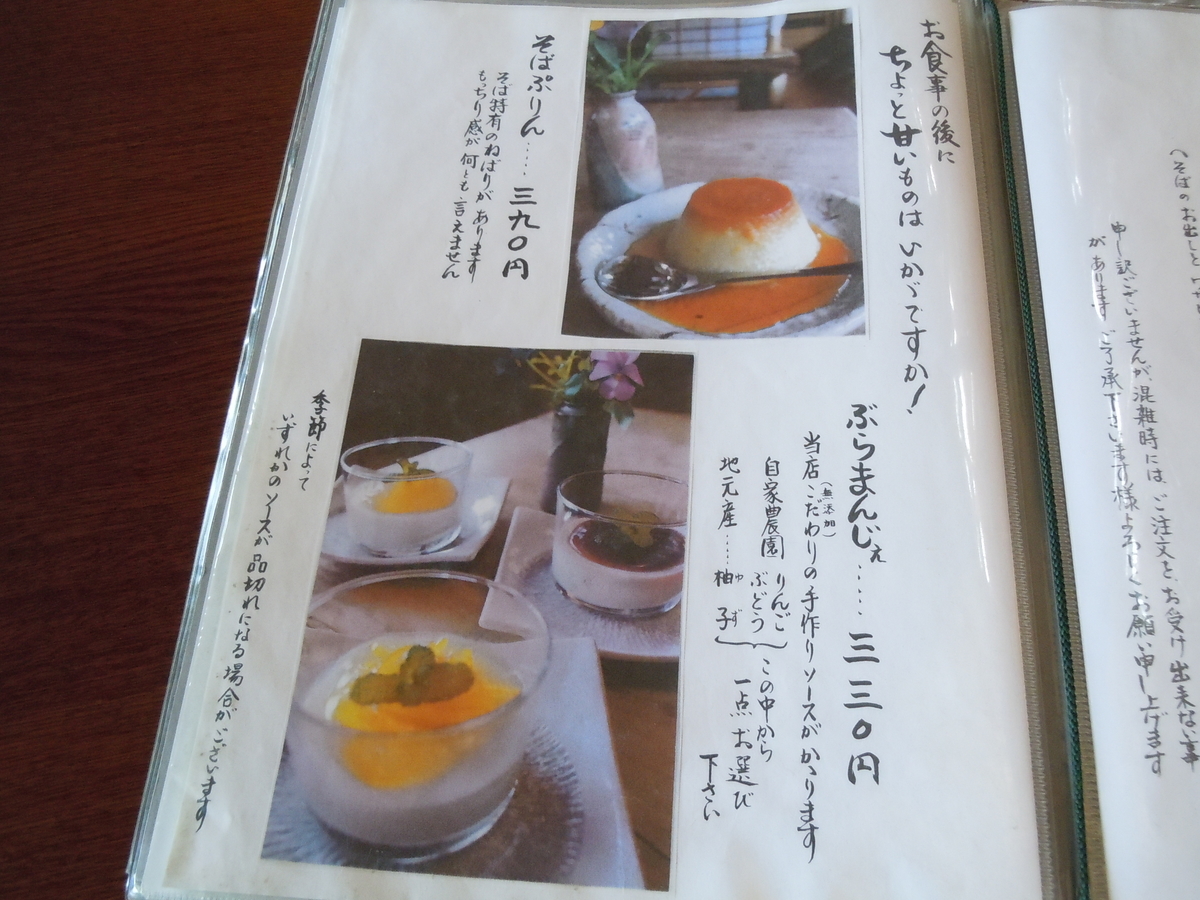 (そばのお出しと
申し訳ございませんが、混雑時には、ご注文を、お受け出来ない事
があります ご了承下さいます様よろしくお願い申し上げます
お食事の後に
ちょっと甘いものはいかゞですか!
そばぷりん……三九〇円
そば特有のねばりがあります
もっちり感が何とも言えません
ぶらまんじぇ……三三〇円
(無添加)
当店こだわりの手作りソースがかゝります
自家農園 りんご
ぶどう
地元産……柚子
ゆず
この中から
一点お選び
下さい
季節によって
いずれかのソースが品切れになる場合がございます